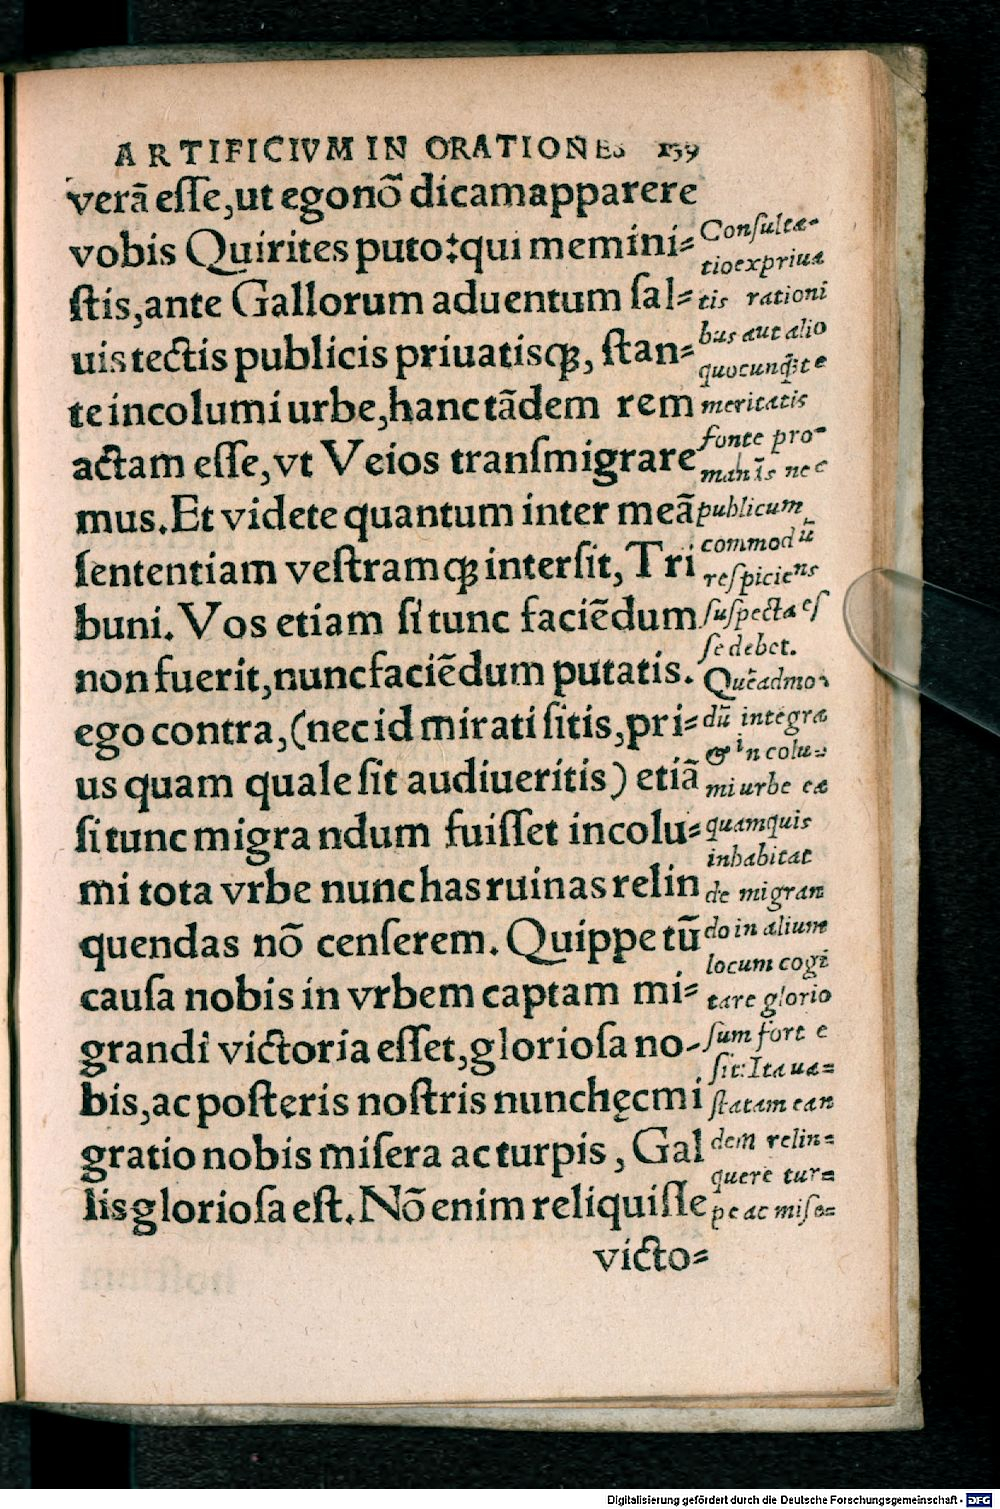 ARTIFICIVM IN ORATIONES 159
verā esse, ut ego nõ dicam apparere
vobis Quirites puto: qui memini=
stis, ante Gallorum aduentum sal=
uis tectis publicis priuatisq;, stan=
te incolumi urbe, hanc tãdem rem
actam esse, vt Veios transmigrare
mus. Et videte quantum inter meã
sententiam vestramq; intersit, Tri
buni. Vos etiam si tunc faciẽdum
non fuerit, nunc faciẽdum putatis.
ego contra, (nec id mirati sitis, pri=
us quam quale sit audiueritis) etiã
si tunc migrandum fuisset incolu=
mi tota vrbe nunc has ruinas relin
quendas nõ censerem. Quippe tũ
causa nobis in vrbem captam mi=
grandi victoria esset, gloriosa no-
bis, ac posteris nostris nunc hęc mi
gratio nobis misera ac turpis, Gal
lis gloriosa est. Nõ enim reliquisse
victo=
Consulta=
tio ex priua
tis rationi
bus aut alio
quocunq; te
meritatis
fonte pro=
manãs nec
publicum
commodũ
respiciens
suspecta es
se debet.
Quẽadmo
dũ integra
& incolu=
mi urbe ea
quam quis
inhabitat
de migran
do in alium
locum cogi
tare glorio
sum fort e
sit: Ita ua=
statam ean
dem relin=
quere tur=
pe ac mise=
Digitalisierung gefördert durch die Deutsche Forschungsgemeinschaft - DFG